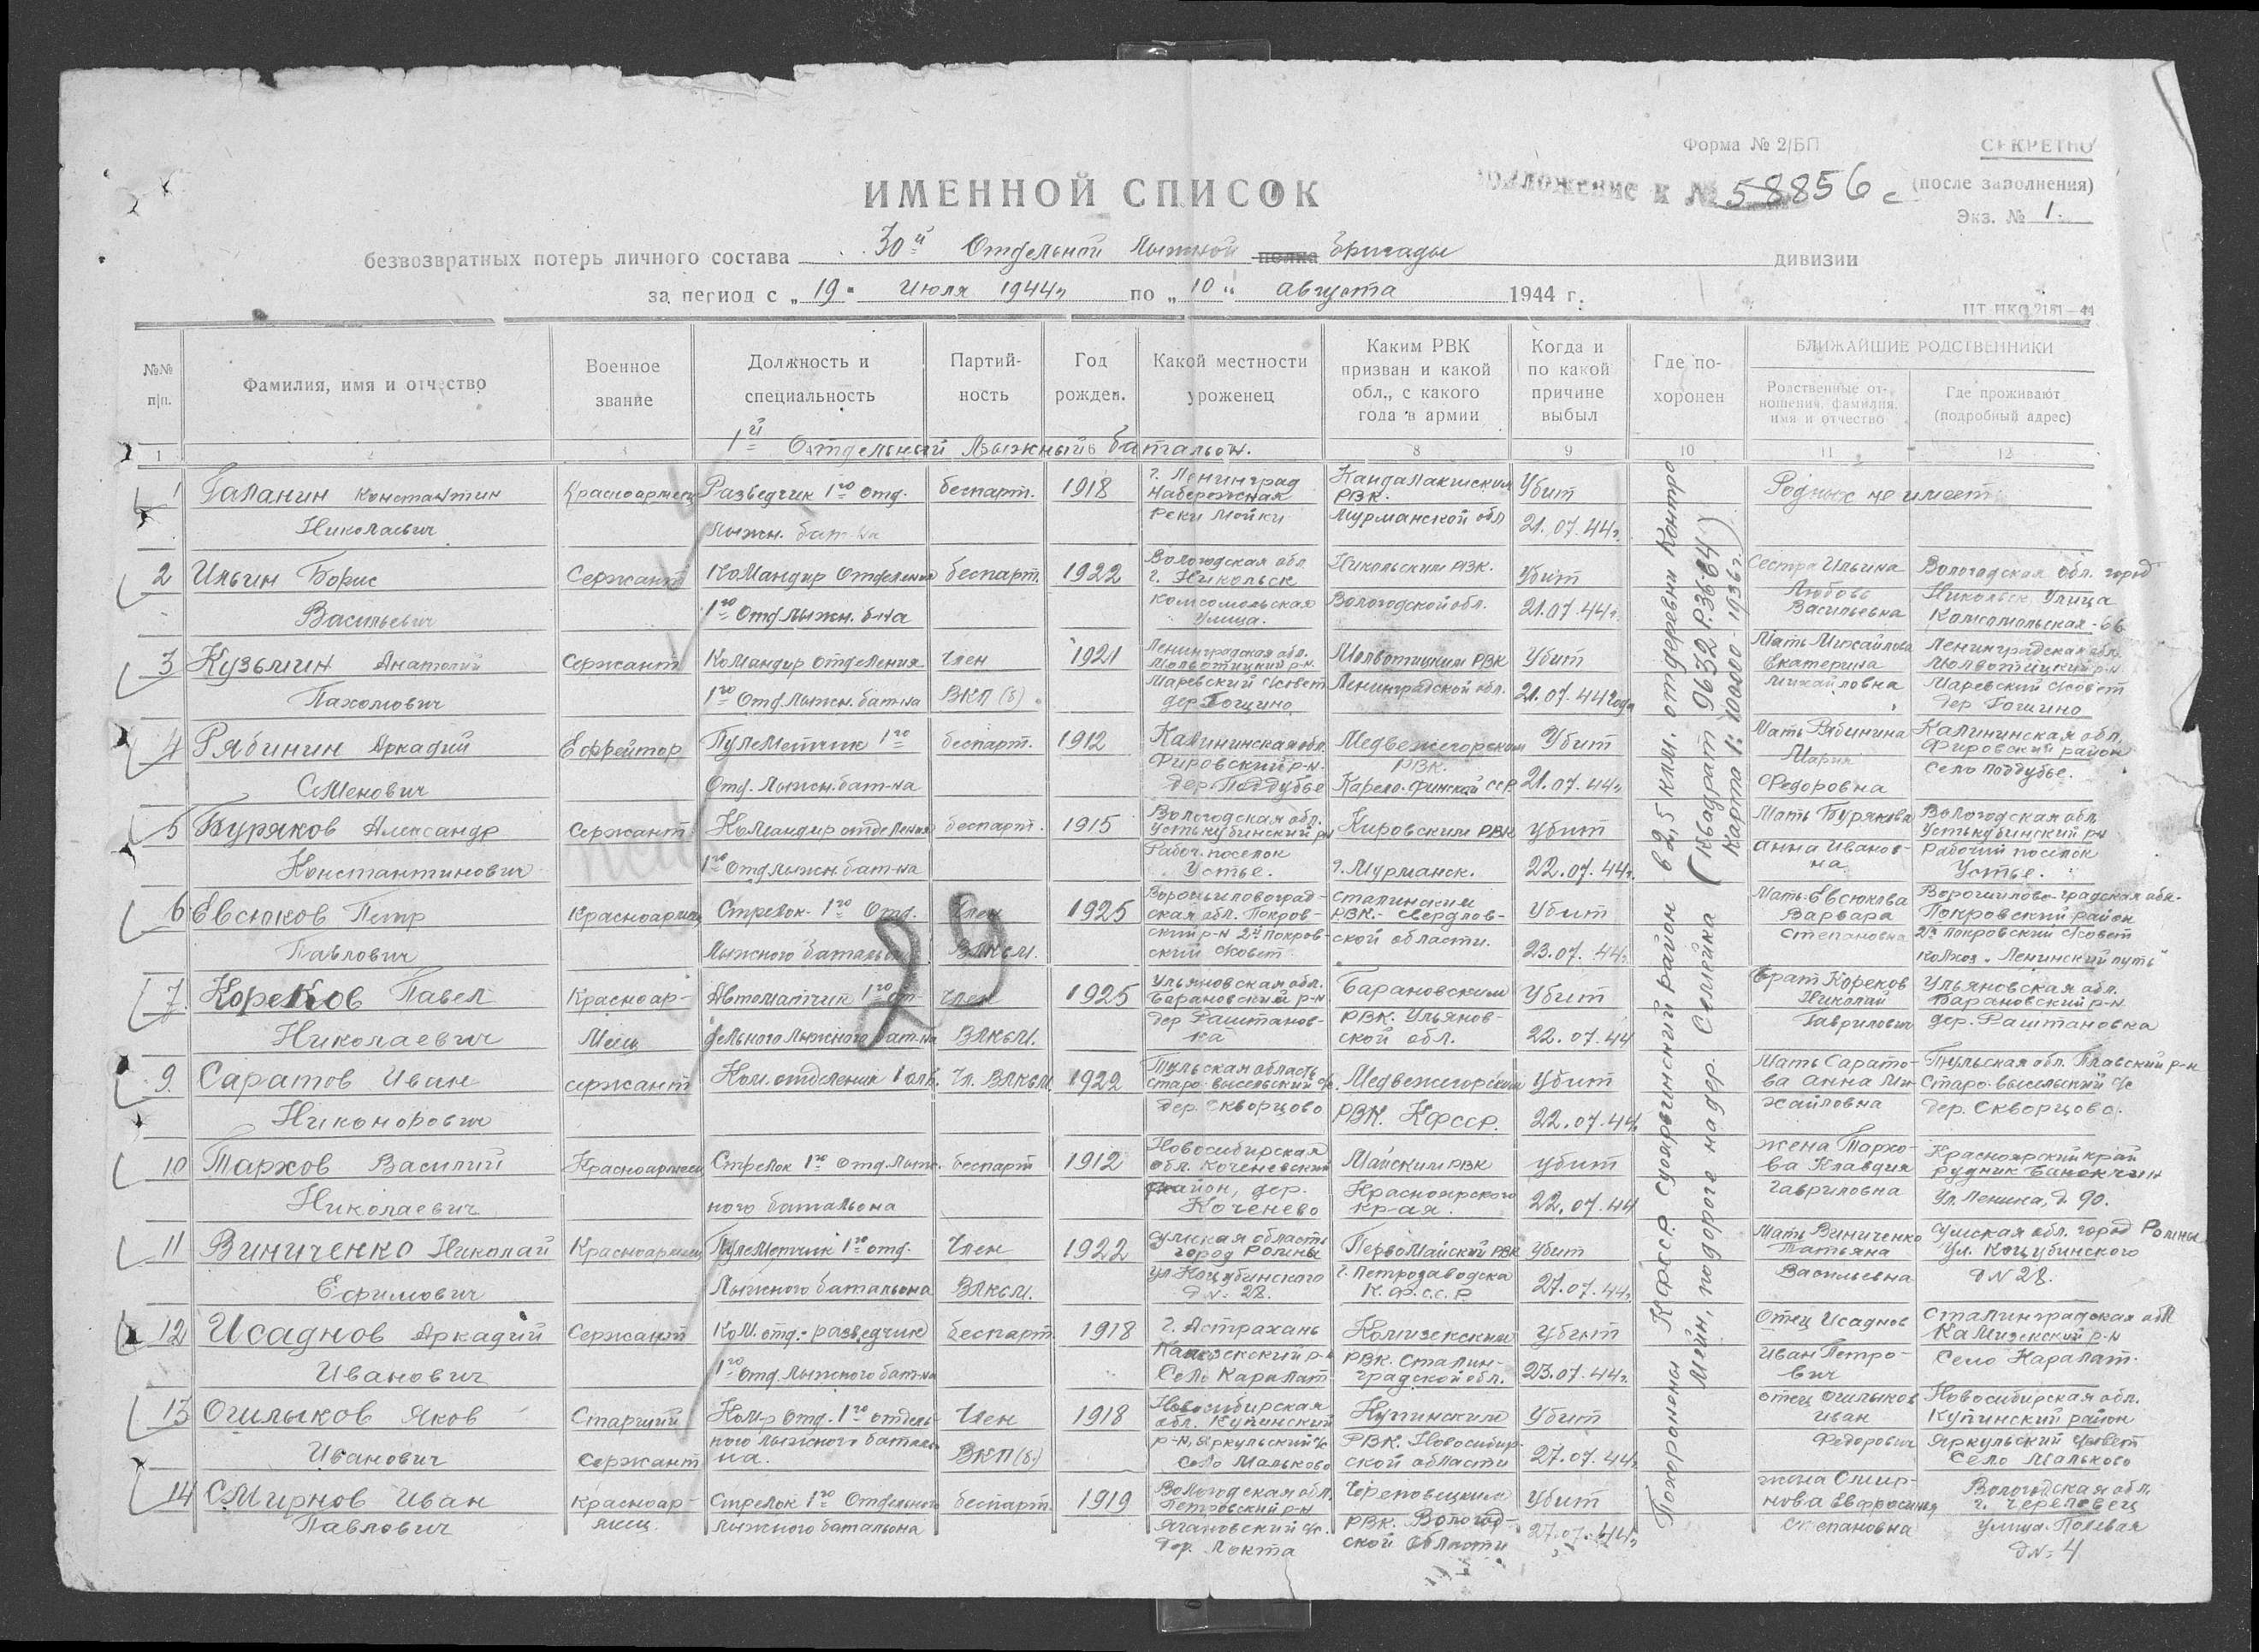 Форма № 2/БП
СЕКРЕТНО
ИМЕННОЙ СПИСОК
приложение к № 58856с
(после заполнения)
Экз. № 1.
безвозвратных потерь личного состава 30й Отдельной Лыжной полка бригады дивизии
за период с „19" Июля 1944г по „10" августа 1944 г.
№№ п|п.
Фамилия, имя и отчество
Военное звание
Должность и специальность
Партийность
Год рожден.
Какой местности уроженец
Каким РВК призван и какой обл., с какого года в армии
Когда и по какой причине выбыл
Где похоронен
БЛИЖАЙШИЕ РОДСТВЕННИКИ
Родственные отношения, фамилия, имя и отчество
Где проживают (подробный адрес)
1й Отдельный Лыжный батальон.
1 2 3 4 5 6 8 9 10 11 12
1 Галанин Константин Николаевич
Красноармеец
Разведчик 1го отд. Лыжн. бат-на
беспарт.
1918
г. Ленинград Набережная Реки Мойки
Кандалакшским РВК. Мурманской обл
Убит 21.07.44г.
Родных не имеет
2 Ильин Борис Васильевич
Сержант
Командир Отделения 1го Отд. лыжн. б-на
беспарт.
1922
Вологодская обл г. Никольск Комсомольская Улица.
Никольским РВК. Вологодской обл.
Убит 21.07.44г.
Сестра Ильина Любовь Васильевна
Вологодская обл. город Никольск Улица Комсомольская-66
3 Кузьмин Анатолий Пахомович
Сержант
Командир отделения 1го Отд. Лыжн. бат-на
Член ВКП(б)
1921
Ленинградская обл. Молвотицкий р-н Маревский с/совет дер Гощино
Молвотицким РВК Ленинградской обл.
Убит 21.07.44 года
Мать Михайлова Екатерина Михайловна
Ленинградская обл. Молвотицкий р-н Маревский с/совет дер Гощино
4 Рябинин Аркадий Семенович
Ефрейтор
Пулеметчик 1го Отд. Лыжн. бат-на
беспарт.
1912
Калининская обл. Фировский р-н. дер Поддубье
Медвежегорским РВК. Карело-Финской ССР
Убит 21.07.44г.
Мать Рябинина Мария Федоровна
Калининская обл, Фировский район Село Поддубье.
5 Буряков Александр Константинович
Сержант
Командир отделения 1го Отд лыжн. бат-на
беспарт.
1915
Вологодская обл. Устькубинский рн Рабоч. поселок Устье.
Кировским РВК г. Мурманск.
убит 22.07.44г.
Мать Бурякова Анна Ивановна
Вологодская обл Устькубинский рн Рабочий поселок Устье.
6 Евсюков Петр Павлович
Красноармеец
Стрелок 1го Отд. Лыжного батальона
Член ВЛКСМ.
1925
Ворошиловоградская обл. Покровский р-н 2й Покровский с/совет
Сталинским РВК.- Свердловской области.
Убит 23.07.44г.
Мать Евсюкова Варвара Степановна
Ворошиловоградская обл. Покровский район 2й Покровский с/совет колхоз „Ленинский путь"
7. Кореков Павел Николаевич
Красноармеец
Автоматчик 1го отдельного лыжного бат-на
Член ВЛКСМ.
1925
Ульяновская обл. Барановский р-н дер Раштановка
Барановским РВК. Ульяновской обл.
Убит 22.07.44
брат Кореков Николай Гаврилович
Ульяновская обл. Барановский р-н. дер. Раштановка
9. Саратов Иван Никонорович
сержант
Ком. отделения 1 олб.
Чл. ВЛКСМ
1922
Тульская область Старо-высельский с/с. дер. Скворцово
Медвежегорским РВК. КФССР.
Убит 22.07.44г.
Мать Саратова Анна Михайловна
Тульская обл. Плавский р-н Старо-высельский с/с дер. Скворцово.
10 Тархов Василий Николаевич
Красноармеец
Стрелок 1го Отд. Лыжного батальона
беспарт
1912
Новосибирская обл. Коченевский район, дер. Коченево
Майским РВК Красноярского края.
убит 22.07.44
жена Тархова Клавдия Гавриловна
Красноярский край рудник Ул Ленина, д 90.
11 Виниченко Николай Ефимович
Красноармеец
Пулеметчик 1го отд. Лыжного батальона
Член ВЛКСМ.
1922
Сумская область город Ромны ул Коцубинского д №: 28.
Первомайский РВК г. Петрозаводска К.Ф.С.С.Р.
Убит 27.07.44г.
Мать Виниченко Татьяна Васильевна
Сумская обл. город Ромны Ул. Коцубинского д № 28.
12 Исаднов Аркадий Иванович
Сержант
Ком. отд.- разведчик 1го Отд. Лыжного бат-на
беспарт.
1918
г. Астрахань Камызекский р-н Село Каралат
Комизекским РВК. Сталинградской обл.
убит 23.07.44г.
Отец Исаднов Иван Петрович
Сталинградская обл Камизекский р-н Село Каралат.
13 Огилыков Яков Иванович
Старший Сержант
Ком-р Отд. 1го отдельного лыжного батальона.
Член ВКП(б.)
1918
Новосибирская обл. Купинский р-н, Яркульский с/с Село Мальково
Купинским РВК. Новосибирской области
Убит 27.07.44г.
отец Огилыков Иван Федорович
Новосибирская обл. Купинский район Яркульский с/совет Село Мальково
14 Смирнов Иван Павлович
Красноармеец
Стрелок 1го Отдельного лыжного батальона
беспарт.
1919
Вологодская обл. Петровский р-н Ягановский с/с. дер. Локта
Череповецким РВК. Вологодской области
Убит 27.07.44г.
жена Смирнова Евфросиния Степановна
Вологодская обл. г. Череповец Улица Полевая д №: 4
Похоронены КФССР Суоярвинский район в 2,5 клм. от деревни Контро
Мейн, по дороге на дер. Селейка (Квадрат 9632
Карта 1:100000-1936г.)
29